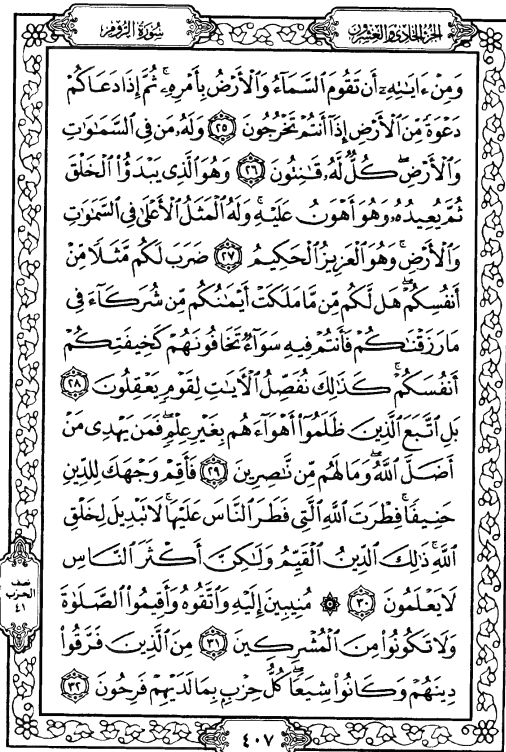 سُورَةُ الرُّومِ
الجزء الحادي والعشرون
وَمِنْ ءَايَٰتِهِۦٓ أَن تَقُومَ ٱلسَّمَآءُ وَٱلْأَرْضُ بِأَمْرِهِۦ ۚ ثُمَّ إِذَا دَعَاكُمْ
دَعْوَةً مِّنَ ٱلْأَرْضِ إِذَآ أَنتُمْ تَخْرُجُونَ ٢٥ وَلَهُۥ مَن فِى ٱلسَّمَٰوَٰتِ
وَٱلْأَرْضِ ۖ كُلٌّ لَّهُۥ قَٰنِتُونَ ٢٦ وَهُوَ ٱلَّذِى يَبْدَؤُا۟ ٱلْخَلْقَ
ثُمَّ يُعِيدُهُۥ وَهُوَ أَهْوَنُ عَلَيْهِ ۚ وَلَهُ ٱلْمَثَلُ ٱلْأَعْلَىٰ فِى ٱلسَّمَٰوَٰتِ
وَٱلْأَرْضِ ۚ وَهُوَ ٱلْعَزِيزُ ٱلْحَكِيمُ ٢٧ ضَرَبَ لَكُم مَّثَلًا مِّنْ
أَنفُسِكُمْ ۖ هَل لَّكُم مِّن مَّا مَلَكَتْ أَيْمَٰنُكُم مِّن شُرَكَآءَ فِى
مَا رَزَقْنَٰكُمْ فَأَنتُمْ فِيهِ سَوَآءٌ تَخَافُونَهُمْ كَخِيفَتِكُمْ
أَنفُسَكُمْ ۚ كَذَٰلِكَ نُفَصِّلُ ٱلْءَايَٰتِ لِقَوْمٍ يَعْقِلُونَ ٢٨
بَلِ ٱتَّبَعَ ٱلَّذِينَ ظَلَمُوٓا۟ أَهْوَآءَهُم بِغَيْرِ عِلْمٍ ۖ فَمَن يَهْدِى مَنْ
أَضَلَّ ٱللَّهُ ۖ وَمَا لَهُم مِّن نَّٰصِرِينَ ٢٩ فَأَقِمْ وَجْهَكَ لِلدِّينِ
حَنِيفًا ۚ فِطْرَتَ ٱللَّهِ ٱلَّتِى فَطَرَ ٱلنَّاسَ عَلَيْهَا ۚ لَا تَبْدِيلَ لِخَلْقِ
ٱللَّهِ ۚ ذَٰلِكَ ٱلدِّينُ ٱلْقَيِّمُ وَلَٰكِنَّ أَكْثَرَ ٱلنَّاسِ
لَا يَعْلَمُونَ ٣٠ ۞ مُنِيبِينَ إِلَيْهِ وَٱتَّقُوهُ وَأَقِيمُوا۟ ٱلصَّلَوٰةَ
وَلَا تَكُونُوا۟ مِنَ ٱلْمُشْرِكِينَ ٣١ مِنَ ٱلَّذِينَ فَرَّقُوا۟
دِينَهُمْ وَكَانُوا۟ شِيَعًا ۖ كُلُّ حِزْبٍۭ بِمَا لَدَيْهِمْ فَرِحُونَ ٣٢
نصف
الحزب
٤١
٤٠٧